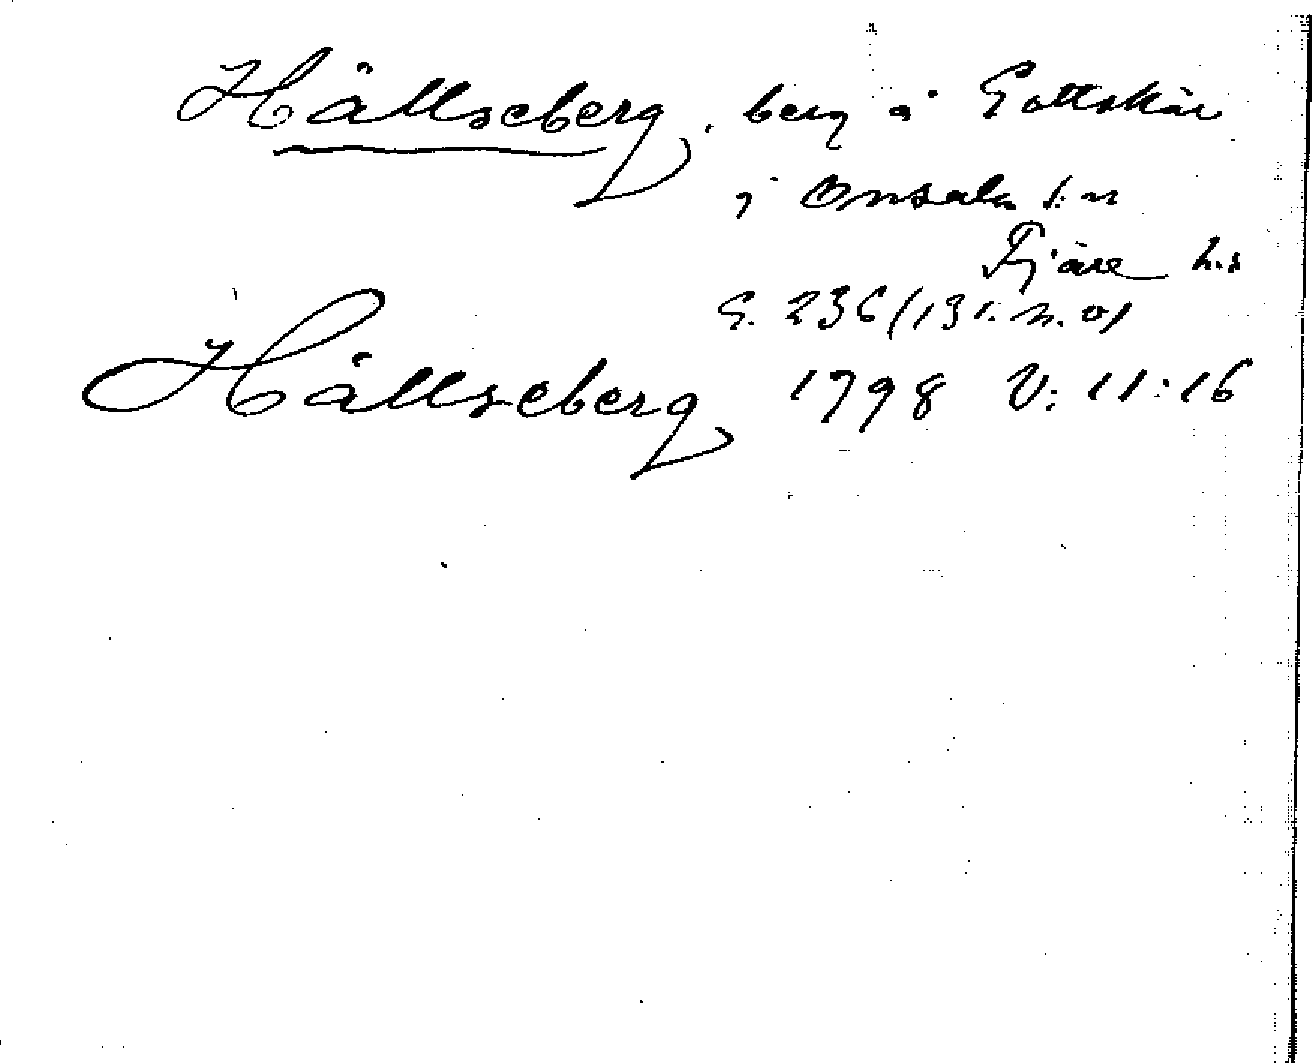 Hällseberg, berg å Gottskär
i Onsala s:n
Fjäre h:s
G. 236 (13 s. n. o)
Hällseberg 1798 V: 11:16